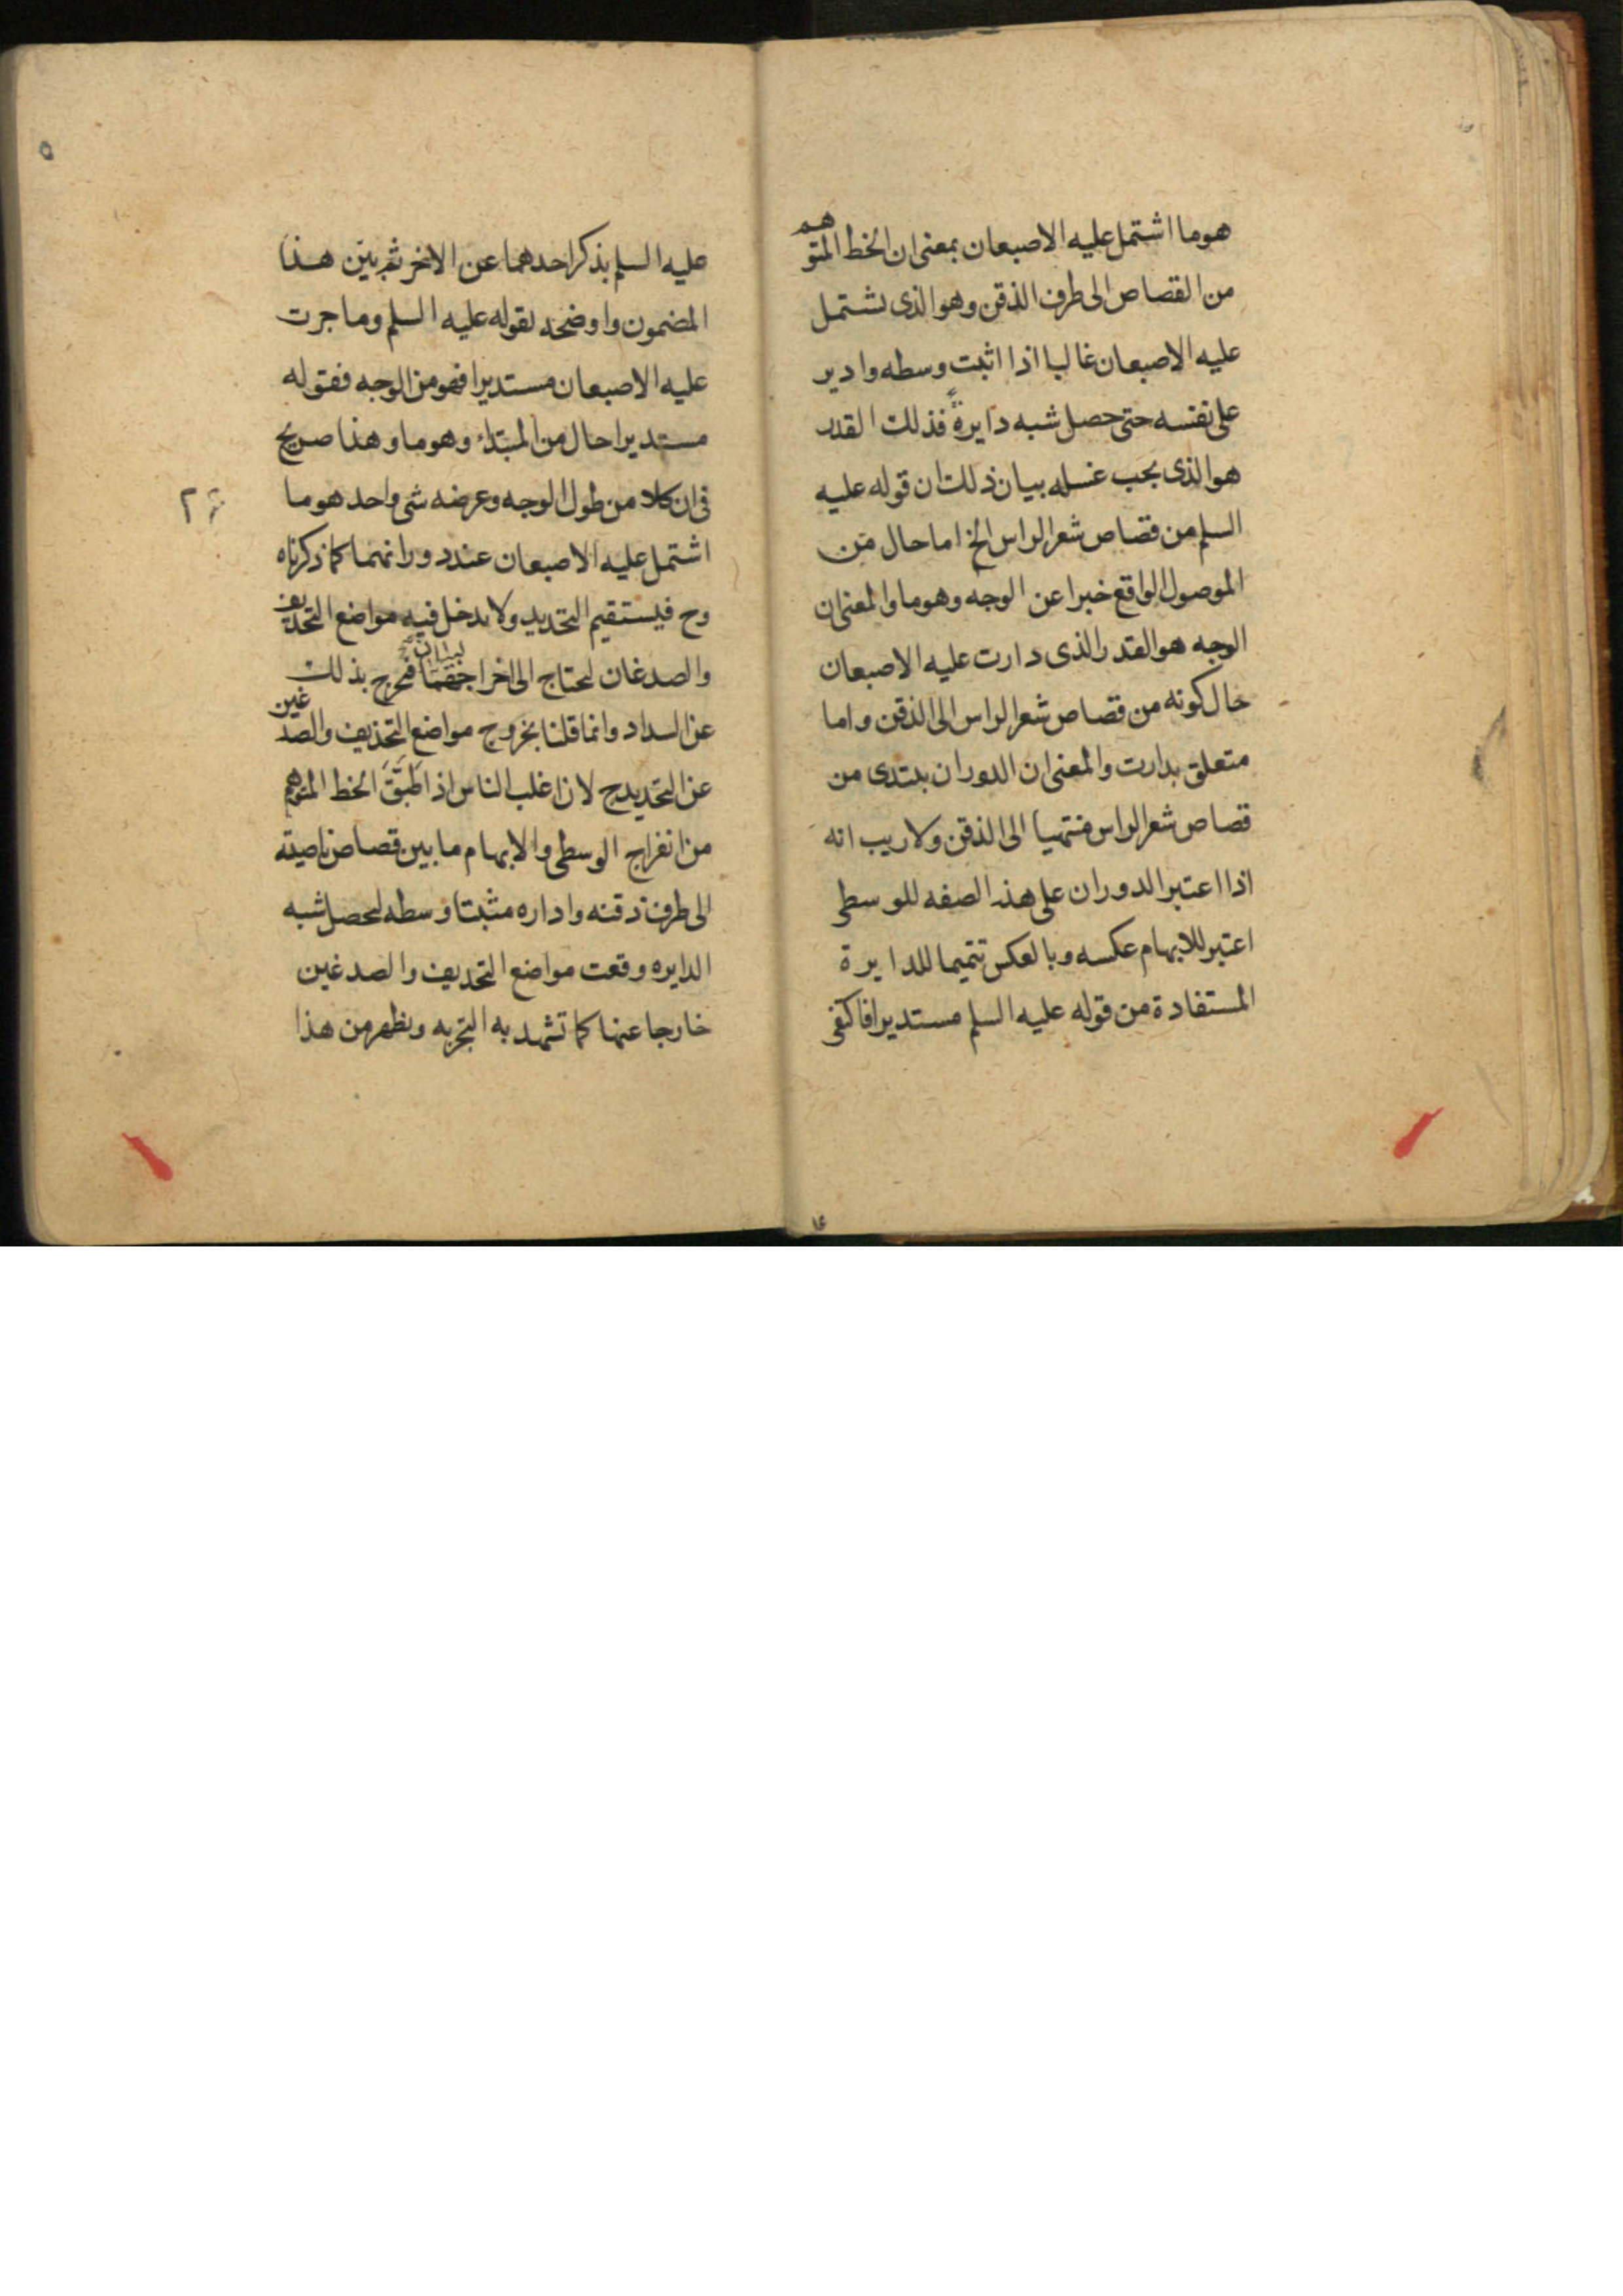 هو ما اشتمل عليه الاصبعان بمعنى ان الخط المتوهم
من القصاص الى طرف الذقن وهو الذى يشتمل
عليه الاصبعان غالبا اذا اثبت وسطه وادير
على نفسه حتى حصل شبه دايرة فذلك القدر
هو الذى يجب غسله بيان ذلك ان قوله عليه
السلم من قصاص شعر الراس الخ اما حال من
الموصول الواقع خبرا عن الوجه وهو ما والمعنى ان
الوجه هو القدر الذى دارت عليه الاصبعان
حال كونه من قصاص شعر الراس الى الذقن واما
متعلق بدارت والمعنى ان الدوران يبتدى من
قصاص شعر الراس منتهيا الى الذقن ولا ريب انه
اذا اعتبر الدوران على هذه الصفه للوسطى
اعتبر للابهام عكسه وبالعكس تتميما للدايرة
المستفادة من قوله عليه السلم مستديرا فاكتفى
عليه السلم بذكر احدهما عن الاخر ثم بيّن هذا
المضمون واوضحه بقوله عليه السلم وما جرت
عليه الاصبعان مستديرا فهو من الوجه فقوله
مستديرا حال من المبتداء وهو ما وهذا صريح
فى ان كلا من طول الوجه وعرضه شى واحد هو ما
اشتمل عليه الاصبعان عند دورانهما كما ذكرناه
وح فيستقيم التحديد ولا يدخل فيه مواضع التحذيف
والصدغان ليحتاج الى اخراجهما فخرج بذلك
عن السداد وانما قلنا بخروج مواضع التحذيف والصدغين
عن التحديد ح لان اغلب الناس اذا طبّق الخط المتوهم
من انفراج الوسطى والابهام ما بين قصاص ناصيته
الى طرف ذقنه واداره مثبتا وسطه ليحصل شبه
الدايره وقعت مواضع التحذيف والصدغين
خارجا عنها كما تشهد به التجربه ويظهر من هذا